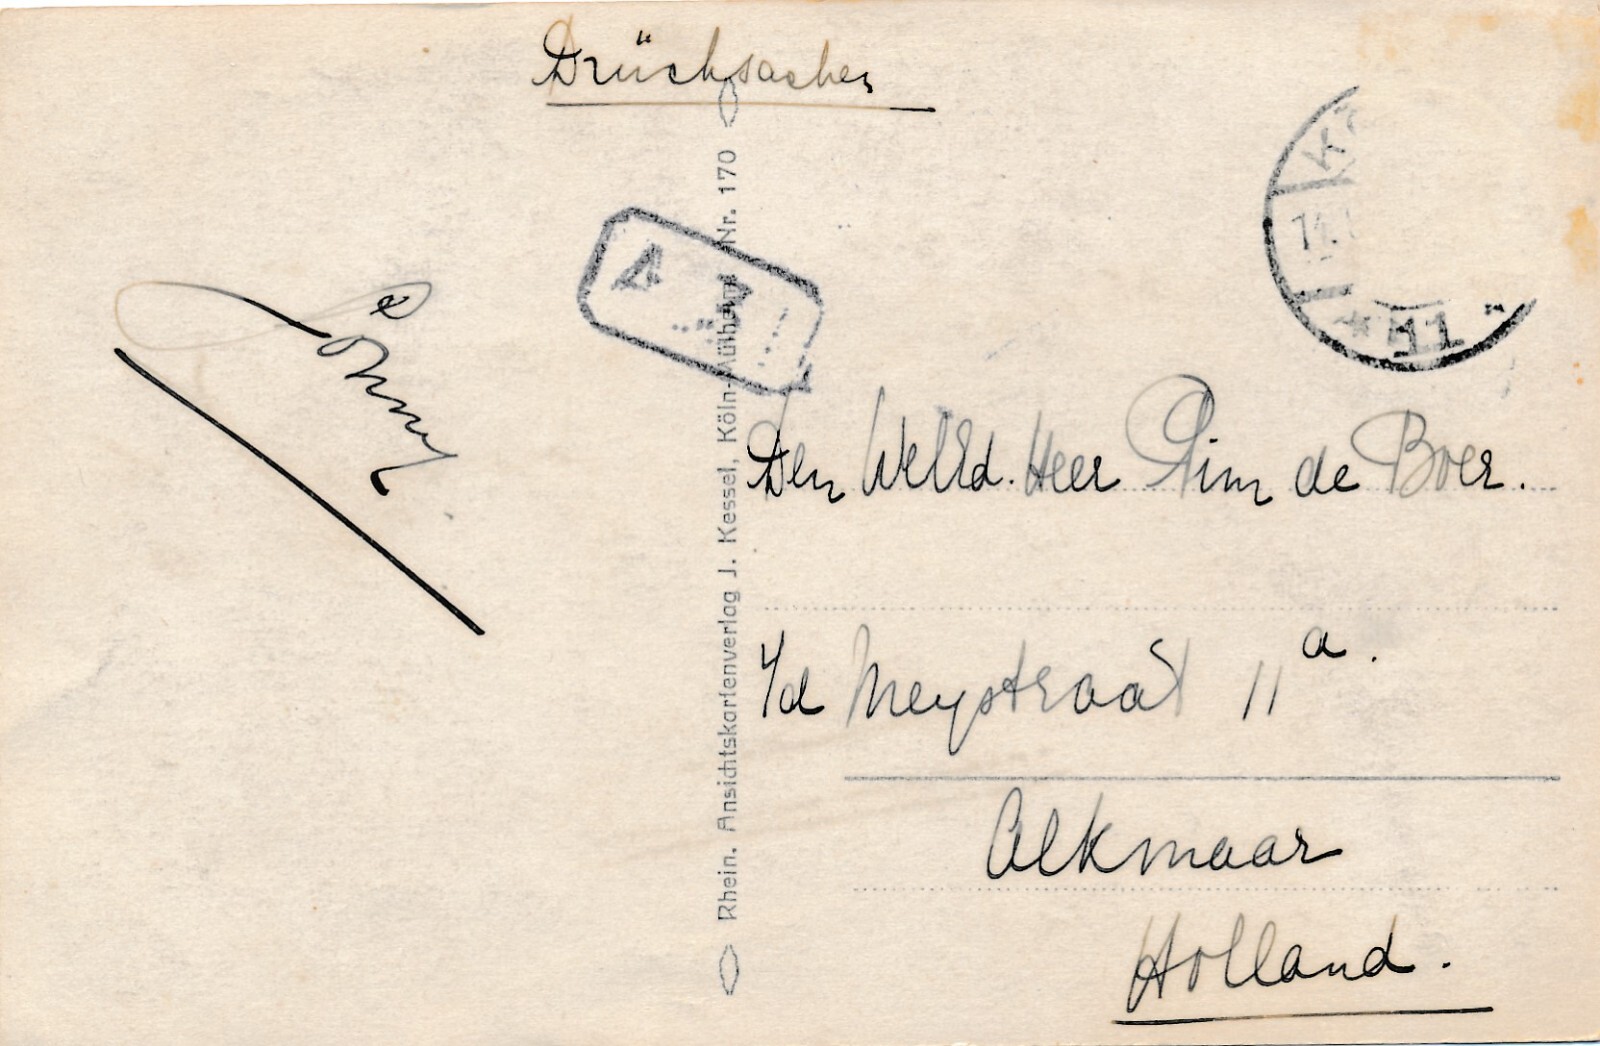 Drücksachen
Rhein. Ansichtskartenverlag J. Kessel, Köln-Mülheim Nr. 170
11
Den WelEd. Heer Pim de Boer.
v/d Meystraat 11a.
Alkmaar
Holland.